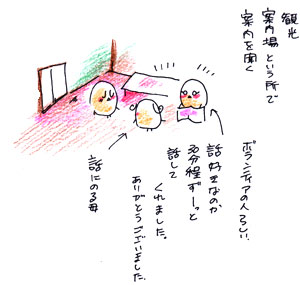 観光
案内場という所で
案内を聞く
ボランティアの人らしい。
話好きなのか
30分程ずーっと
話して
くれました。
ありがとうございました。
話にのる母